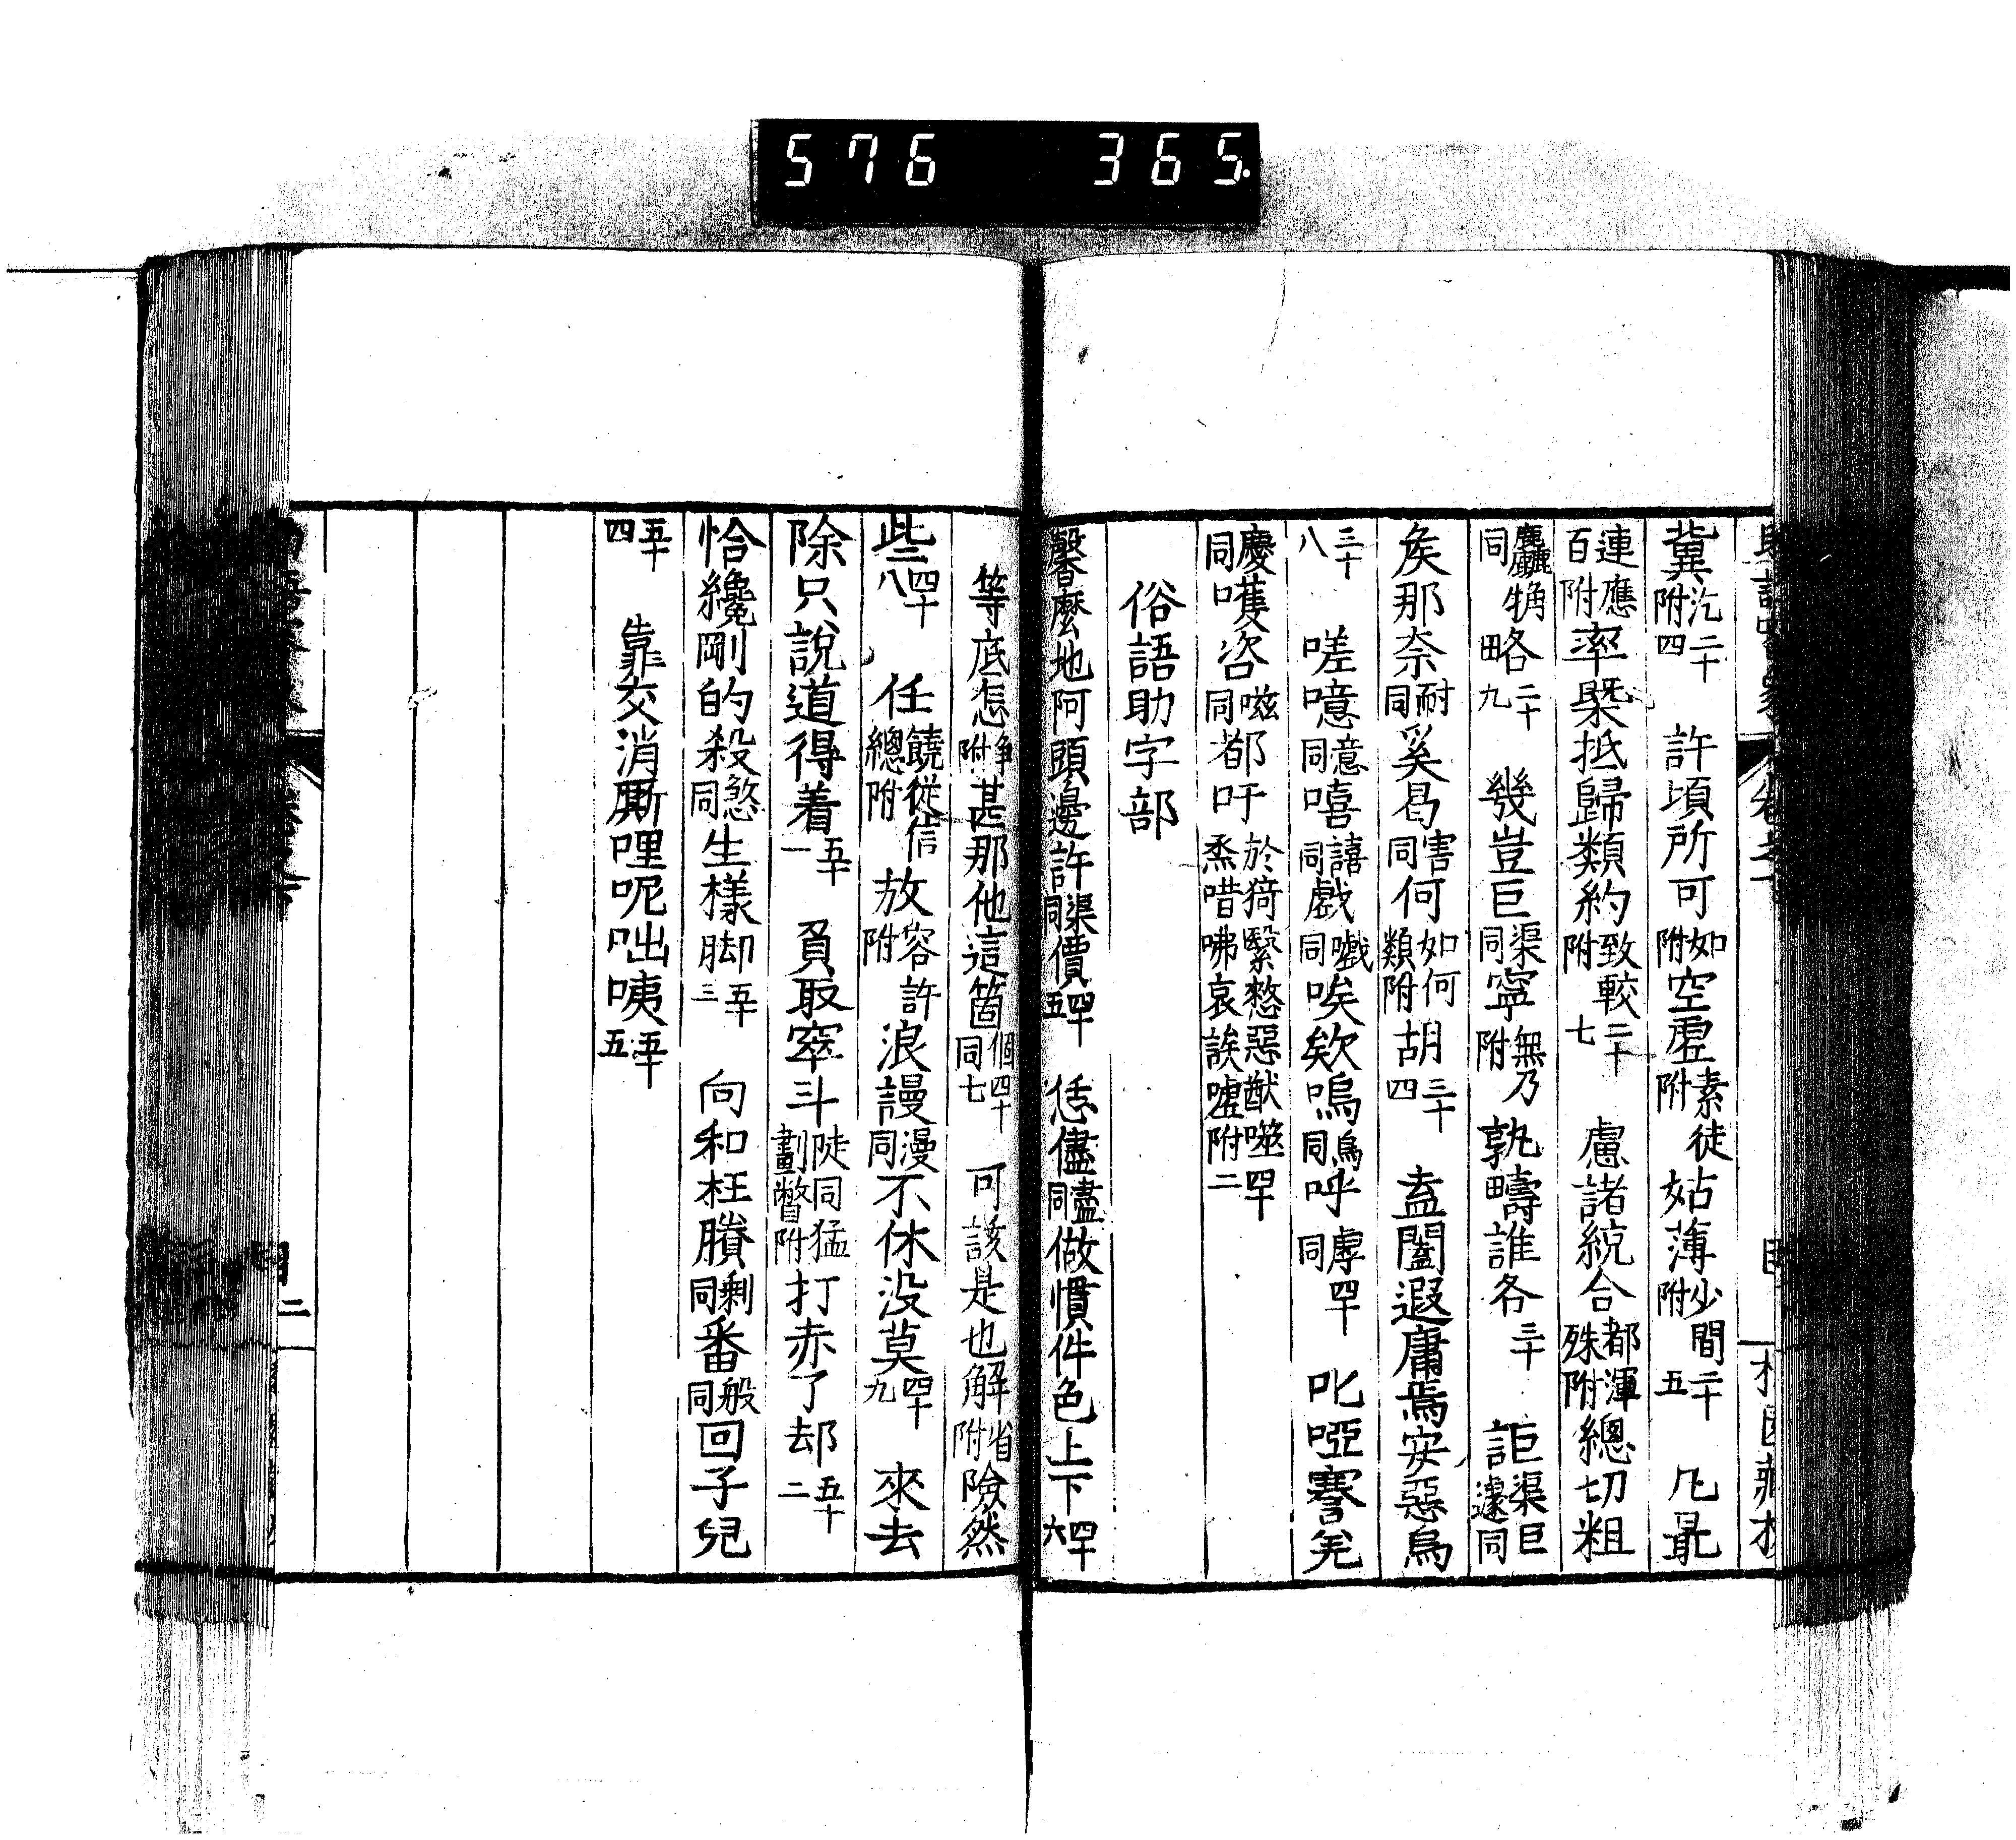 576 365.
冀汔附二十四 許頃所可如附空虛素徒附姑薄少間附二十五 凡最
連應百附率槩抵歸類約致較附二十七 慮諸統合都渾殊附總切粗
麤同觕略二十九 幾豈巨渠同寧無乃附孰疇誰各三十 詎渠巨遽同
矦那奈耐同奚曷害同何如何類附胡三十四 盍闔遐庸焉安惡烏
三十八 嗟噫意同嘻譆同戲嚱同唉欸嗚烏同呼虖同四十 叱啞謇羌
慶同嚄咨嗞同都吁於猗繄憖惡猷噬焘唶咈哀誒嘘附四十二
俗語助字部
馨麼地阿頭邊許渠同價四十五 恁儘盡同做慣件色上下四十六
等底怎爭附甚那他這箇個同四十七 可該是也解省附險然
些四十八 任饒從信總附放容許附浪謾漫同不休没莫四十九 來去
除只說道得着五十一 負取窣斗陡同猛劃瞥附打赤了却五十二
恰纔剛的殺煞同生樣脚五十三 向和枉賸剩同番般同回子兒
五十四 靠交消厮哩呢咄咦五十五